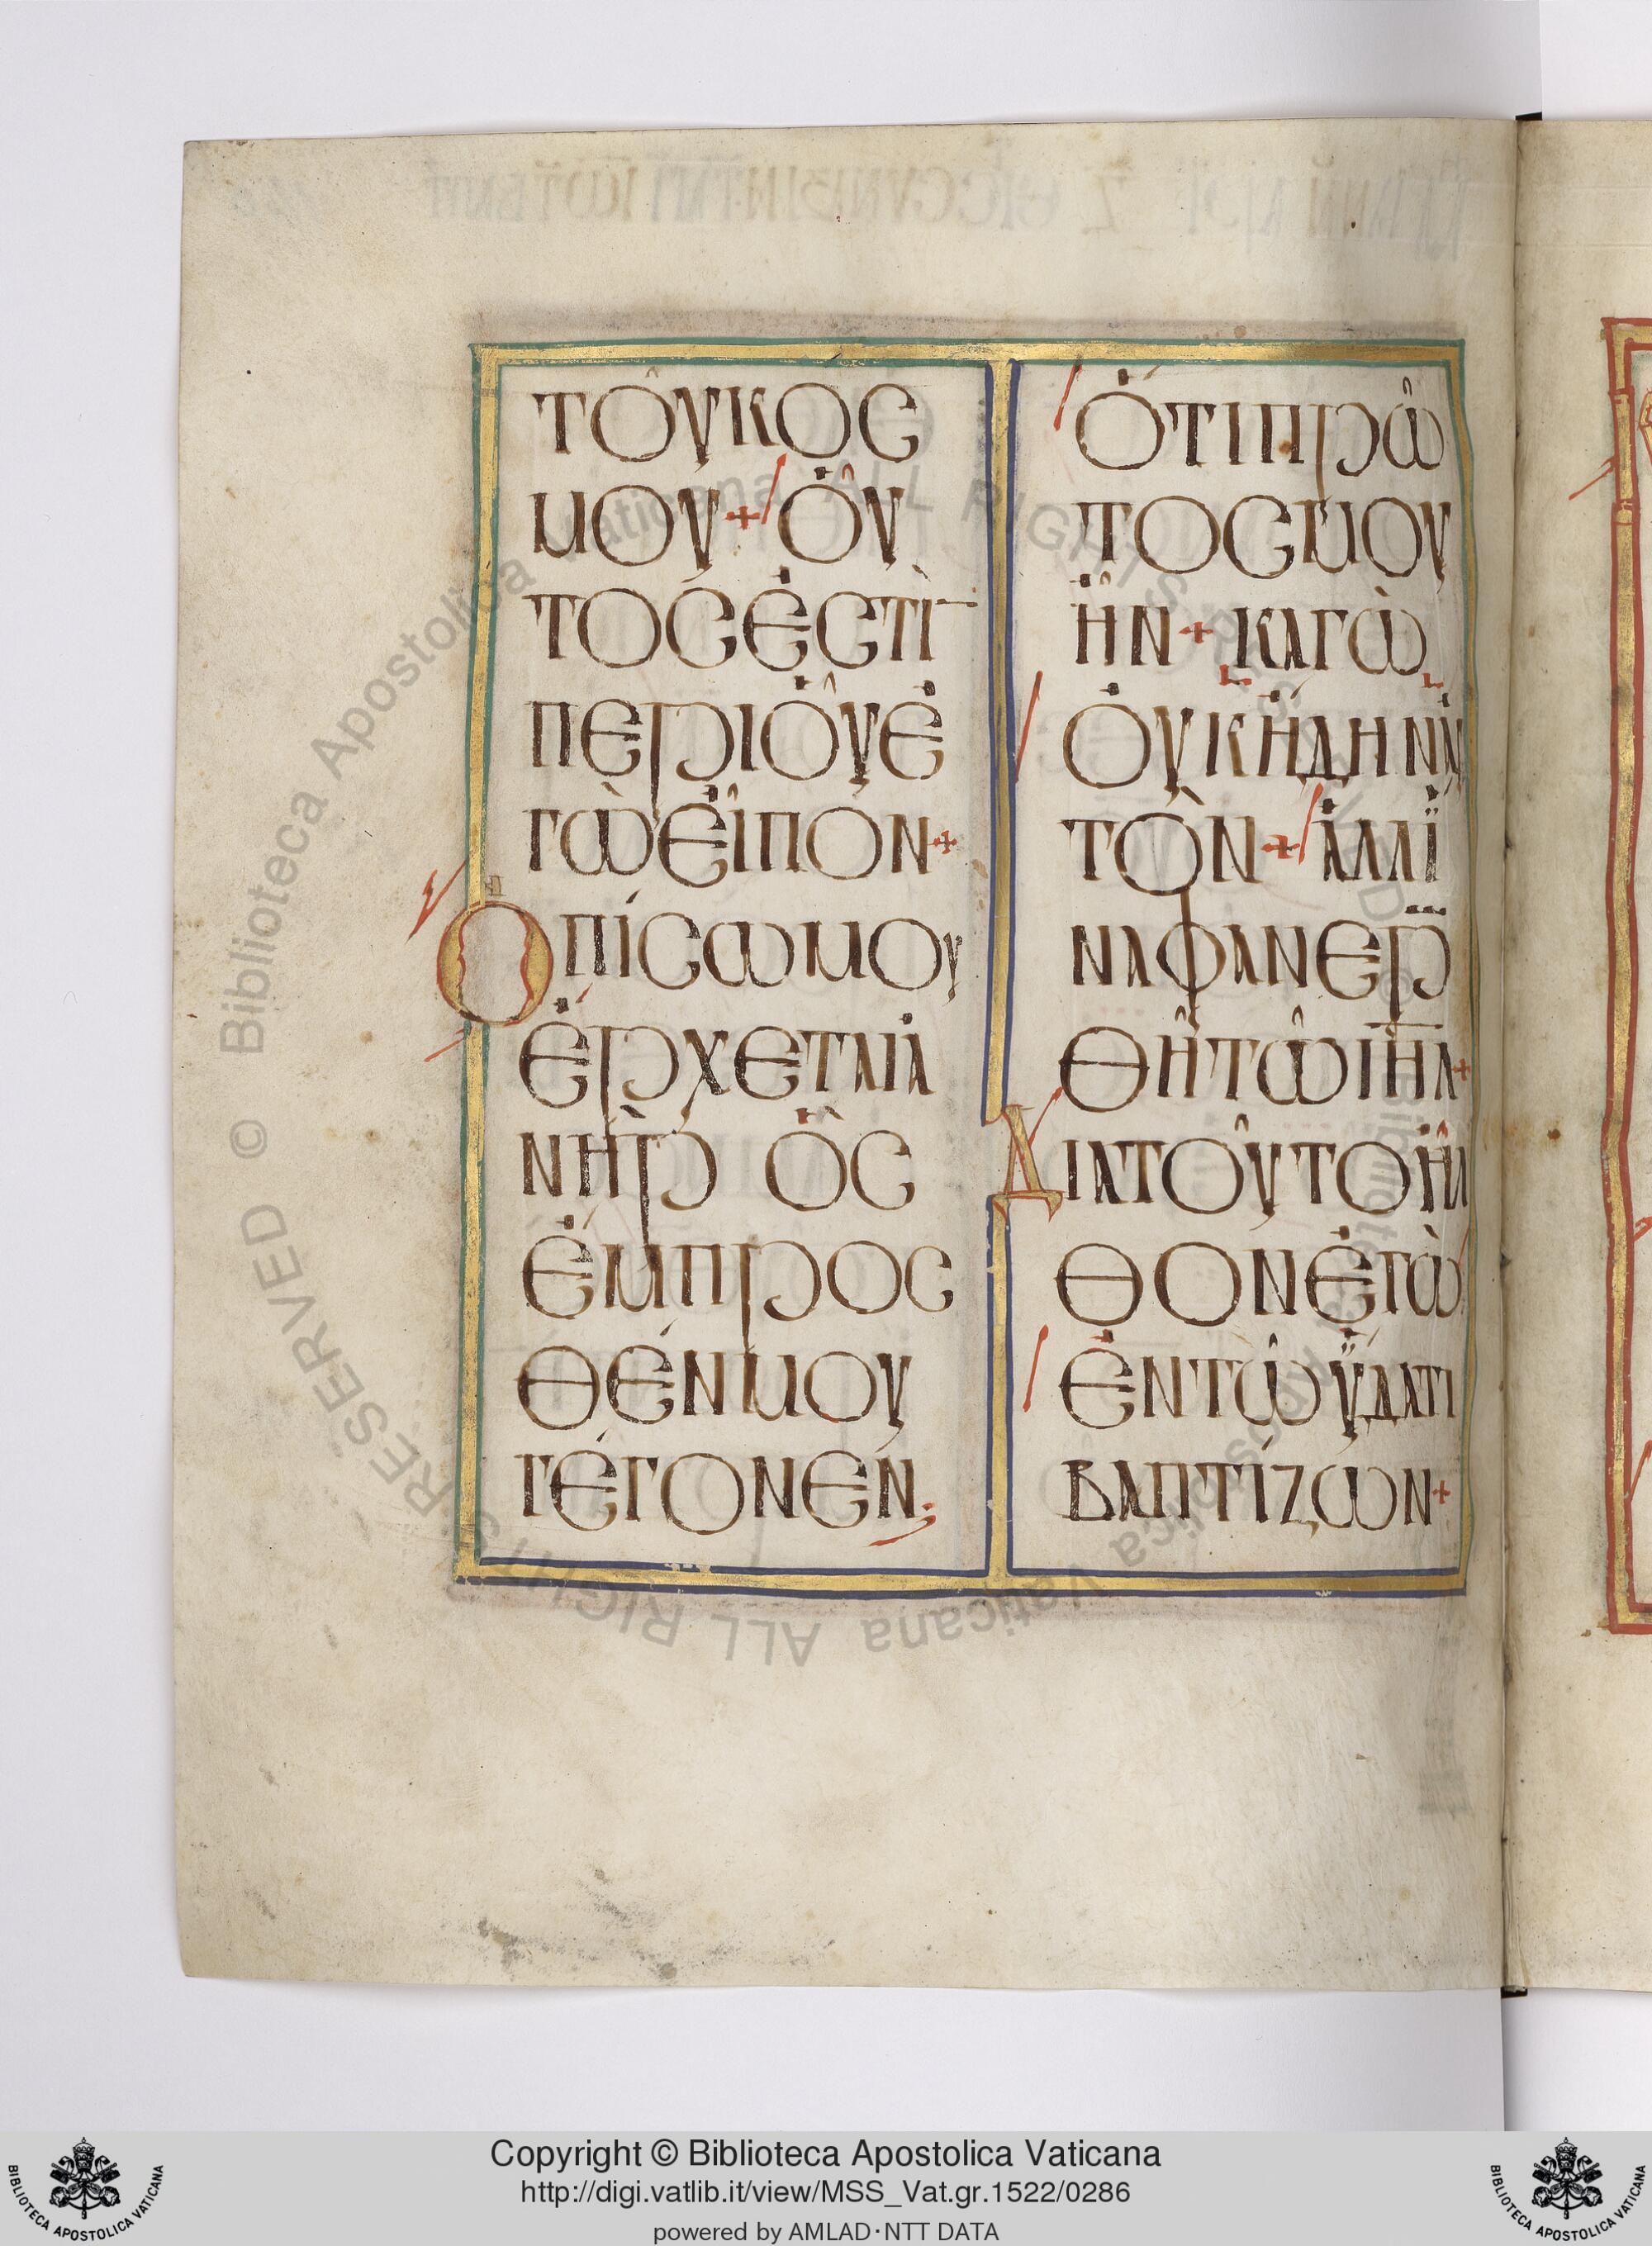 ΤΟῦΚΟС
ΜΟΥ + ΟὗΝ
ΤΟСἐСΤὶ
ΠΕΡΙΟὗἐ
ΓὼΕἶΠΟΝ +
ΟΠίСΩΜΟΥ
ἔΡΧΕΤΑΙἀ
ΝὴΡ ὃС
ἔΜΠΡΟС
ΘέΝΜΟΥ
ΓέΓΟΝΕΝ
ὅΤΙΠΡῶ
ΤΟСΜΟΥ
ἦΝ + ΚΑΓὼ
ΟὐΚᾔΔΗΝΑὐ
ΤὸΝ + ἀΛΛΪ
ΝΑΦΑΝΕΡ
ΘῇΤῶΙΗΛ +
ΔΙΑΤΟῦΤΟἦΛ
ΘΟΝἐΓὼ
ἐΝΤῶὕΔΑΤΙ
ΒΑΠΤίΖΩΝ +
© Biblioteca Apostolica Vaticana ALL RIGHTS RESERVED
Copyright © Biblioteca Apostolica Vaticana
http://digi.vatlib.it/view/MSS_Vat.gr.1522/0286
powered by AMLAD·NTT DATA
BIBLIOTECA APOSTOLICA VATICANA
BIBLIOTECA APOSTOLICA VATICANA